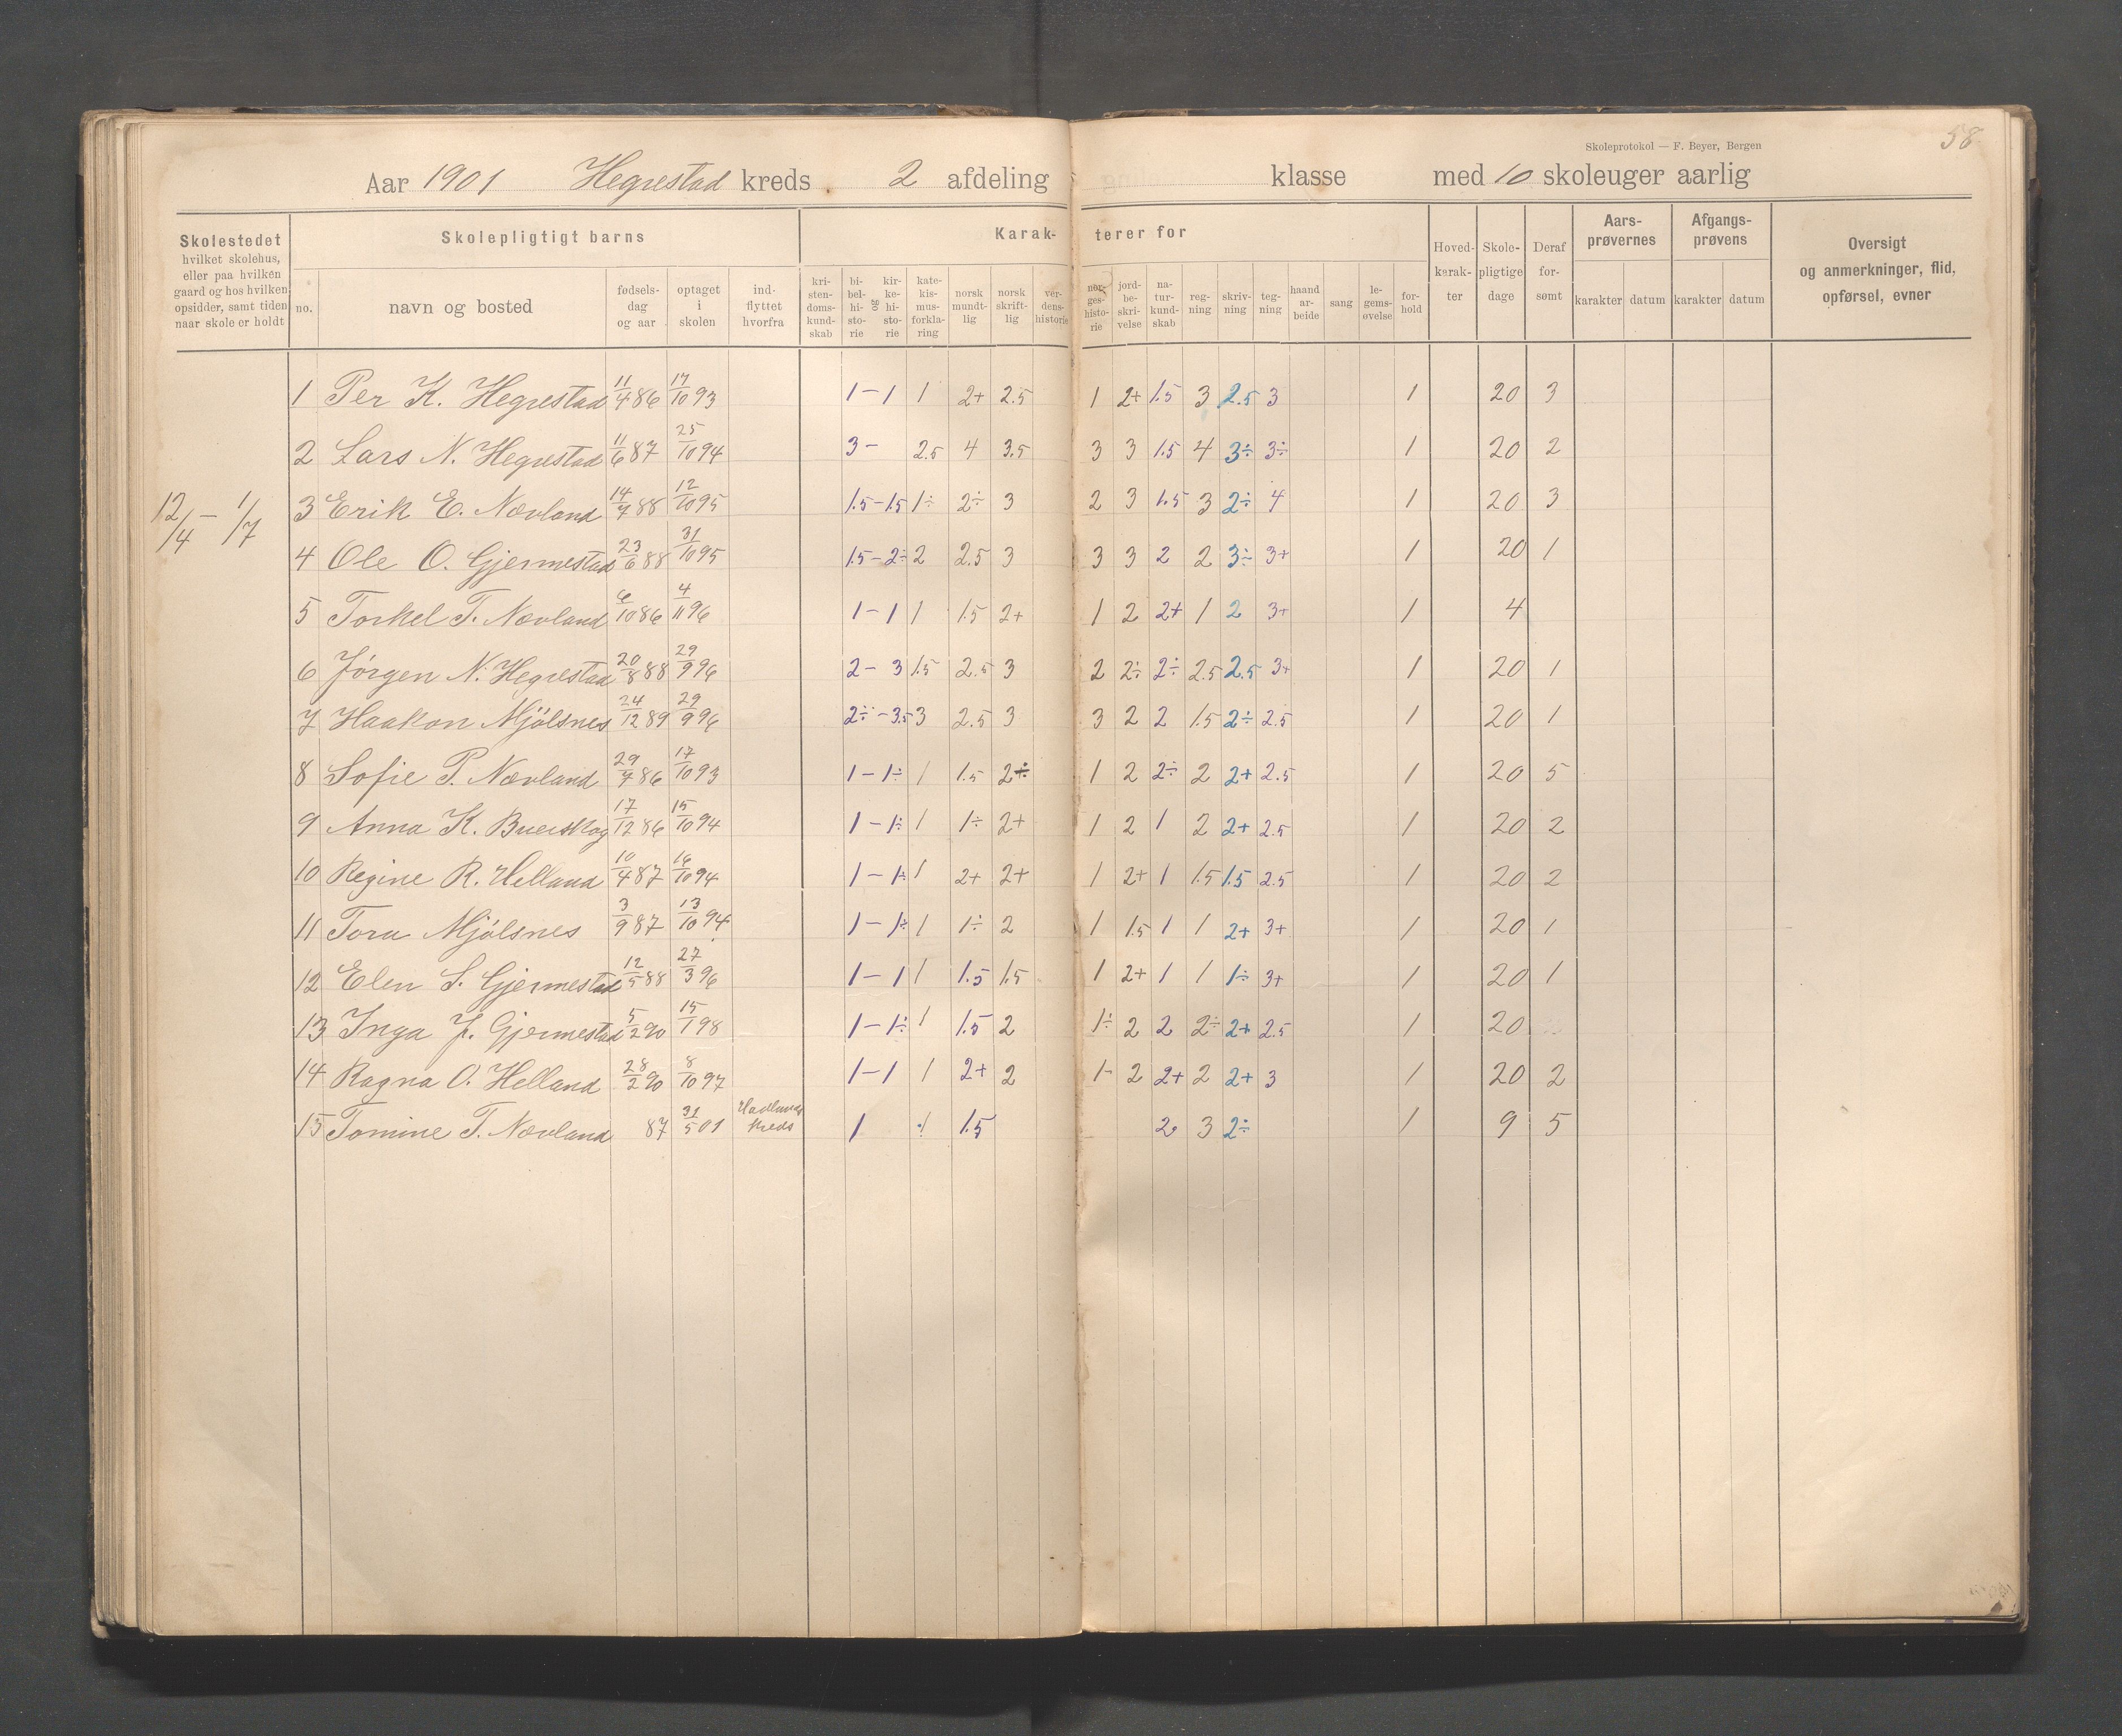 58
Skoleprotokol — F. Beyer, Bergen
Aar 1901 Hegrestad kreds. 2 afdeling klasse med 10 skoleuger aarlig
Skolestedet hvilket skolehus, eller paa hvilken gaard og hos hvilken opsidder, samt tiden naar skole er holdt
Skolepligtigt barns
Karak- terer for
no. navn og bosted fødsels-dag og aar optaget i skolen ind-flyttet hvorfra
kri-sten-doms-kund-skab bi-bel-hi-sto-rie og kir-ke-hi-sto-rie kate-kis-mus-forkla-ring norsk mundt-lig norsk skrift-lig ver-dens-historie nor-ges-histo-rie jord-be-skri-velse na-tur-kund-skab reg-ning skriv-ning teg-ning haand ar-beide sang le-gems-øvelse for-hold
Hoved-karak-ter Skole-pligtige dage Deraf for-sømt
Aars-prøvernes karakter datum Afgangs-prøvens karakter datum
Oversigt og anmerkninger, flid, opførsel, evner
12/4 – 1/7
1 Per K. Hegrestad 11/4 86 17/10 93 1 – 1 1 2+ 2.5 1 2+ 1.5 3 2.5 3 1 20 3
2 Lars N. Hegrestad 11/6 87 25/10 94 3 – 2.5 4 3.5 3 3 1.5 4 3÷ 3÷ 1 20 2
3 Erik E. Nævland 14/7 88 12/10 95 1.5 – 1.5 1÷ 2÷ 3 2 3 1.5 3 2÷ 4 1 20 3
4 Ole O. Gjermestad 23/6 88 31/10 95 1.5 – 2÷ 2 2.5 3 3 3 2 2 3÷ 3+ 1 20 1
5 Torkel T. Nævland 6/10 86 4/11 96 1 – 1 1 1.5 2+ 1 2 2+ 1 2 3+ 1 4
6 Jørgen N. Hegrestad 20/8 88 29/9 96 2 – 3 1.5 2.5 3 2 2÷ 2÷ 2.5 2.5 3+ 1 20 1
7 Haakon Mjølsnes 24/12 89 29/9 96 2÷ – 3.5 3 2.5 3 3 2 2 1.5 2÷ 2.5 1 20 1
8 Sofie P. Nævland 29/7 86 17/10 93 1 – 1÷ 1 1.5 2÷ 1 2 2÷ 2 2+ 2.5 1 20 5
9 Anna K. Buerskog 17/12 86 15/10 94 1 – 1÷ 1 1÷ 2+ 1 2 1 2 2+ 2.5 1 20 2
10 Regine R. Helland 10/4 87 16/10 94 1 – 1÷ 1 2+ 2+ 1 2+ 1 1.5 1.5 2.5 1 20 2
11 Tora Mjølsnes 3/9 87 13/10 94 1 – 1÷ 1 1÷ 2 1 1.5 1 1 2+ 3+ 1 20 1
12 Elen S. Gjermestad 12/5 88 27/3 96 1 – 1 1 1.5 1.5 1 2+ 1 1 1÷ 3+ 1 20 1
13 Inga J. Gjermestad 5/2 90 15/1 98 1 – 1÷ 1 1.5 2 1÷ 2 2 2÷ 2+ 2.5 1 20 ..
14 Ragna O. Helland 28/2 90 8/10 97 1 – 1 1 2+ 2 1- 2 2+ 2 2+ 3 1 20 2
15 Tomine T. Nævland 87 31/5 01 kreds 1 1 1.5 2 3 2÷ 1 9 5